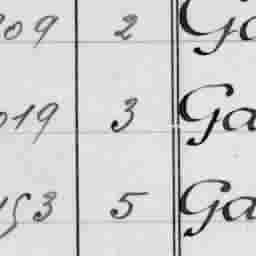 309 2 Ga
019 3 Ga
153 5 Ga